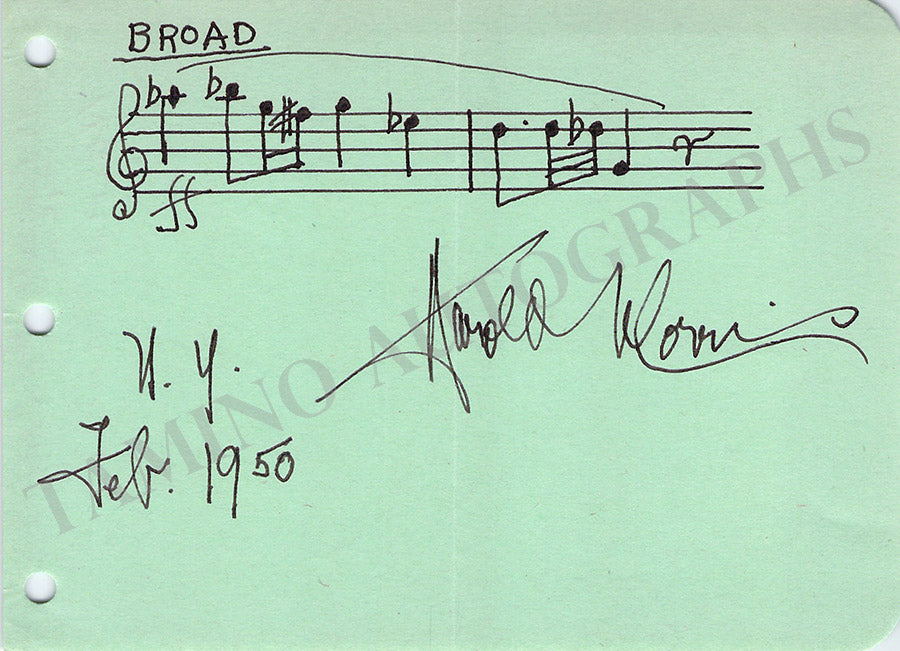 BROAD
ff
Harold Morris
N. Y.
Feb. 1950
TAMINO AUTOGRAPHS